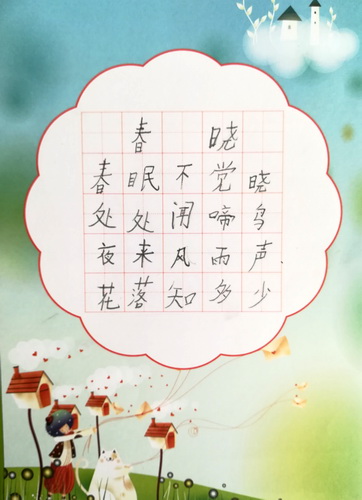 春晓
春眠不党晓
处处闻啼鸟
夜来风雨声.
花落知多少